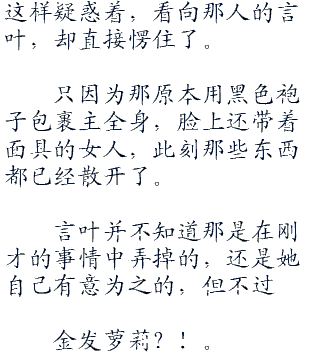 这样疑惑着，看向那人的言
叶，却直接愣住了。
只因为那原本用黑色袍
子包裹主全身，脸上还带着
面具的女人，此刻那些东西
都已经散开了。
言叶并不知道那是在刚
才的事情中弄掉的，还是她
自己有意为之的，但不过
金发萝莉？！。